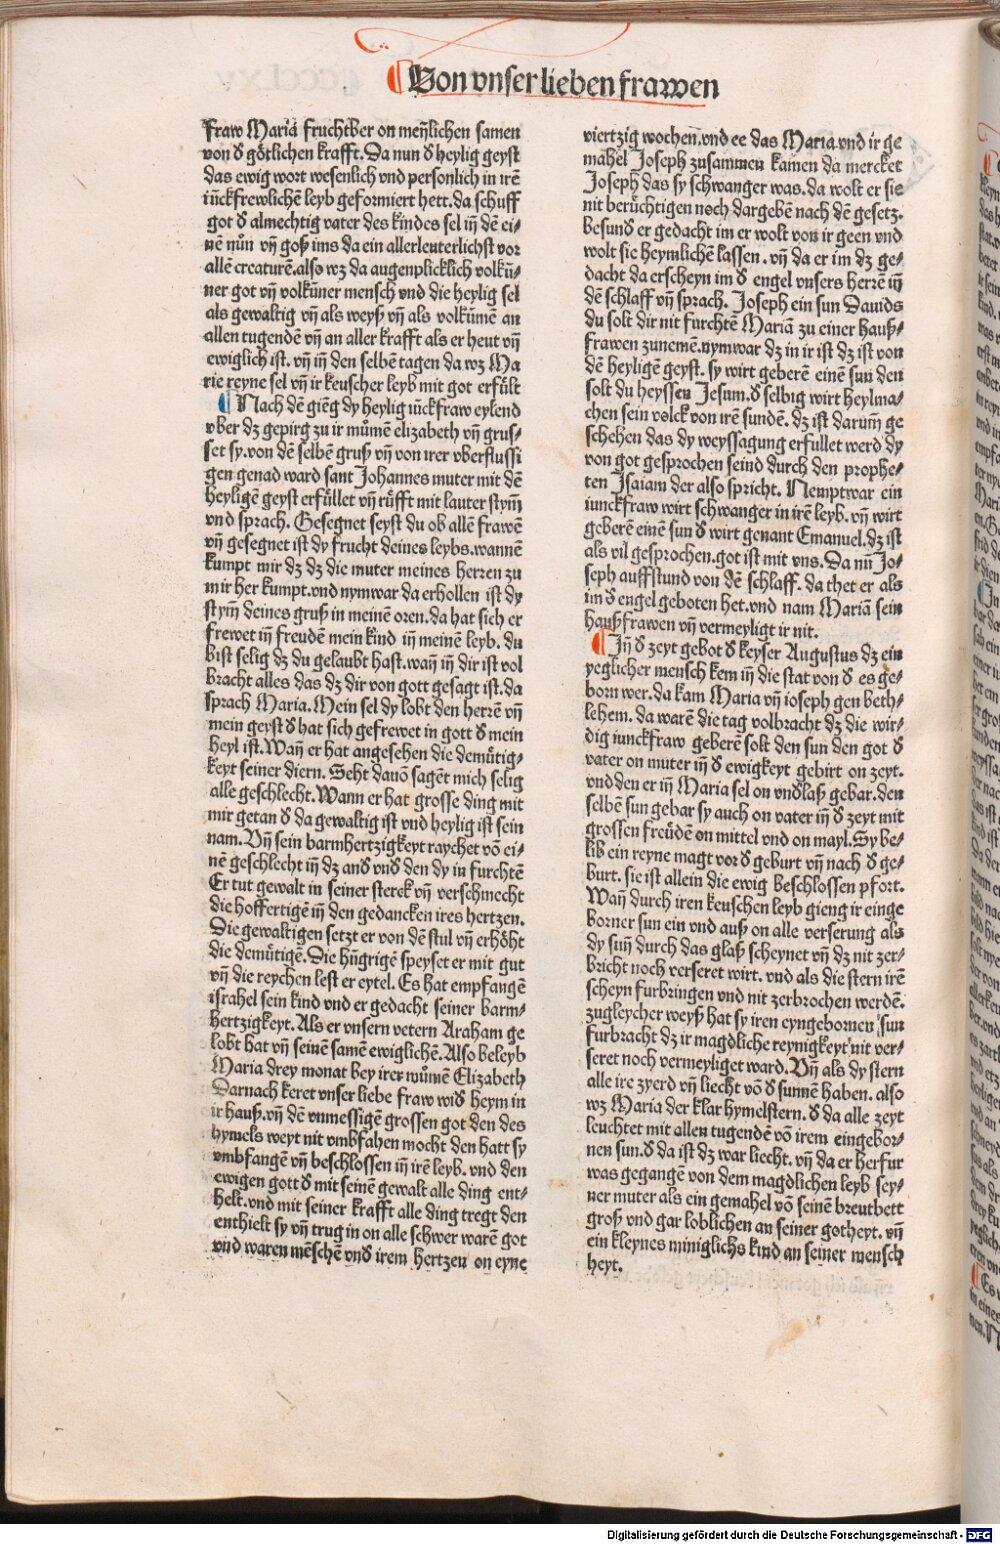 Von vnser lieben frawen
fraw Maria fruchtber on menlichen samen
von d götlichen krafft. Da nun d heylig geyst
das ewig wort wesenlich vnd personlich in irē
iūckfrewlichē leyb geformiert hett. da schuff
got d almechtig vater des kindes sel in̄ dē ei-
nē nůn vn̄ goß ims da ein allerleuterlichst vor
allē creaturē. also wz da augenplicklich volkū-
ner got vn̄ volkūner mensch vnd die heylig sel
als gewaltig vn̄ als weyß vn̄ als volkūmē an
allen tugendē vn̄ an aller krafft als er heut vn̄
ewiglich ist. vn̄ in̄ den selbē tagen da wz Ma
rie reyne sel vn̄ ir keuscher leyb mit got erfült
Nach dē giēg dy heylig iūckfraw eylend
vber dz gepirg zu ir můmē elizabeth vn̄ grus-
set sy. von dē selbē gruß vn̄ von irer vberflussi
gen genad ward sant Johannes muter mit dē
heyligē geyst erfüllet vn̄ růfft mit lauter stym̄
vnd sprach. Gesegnet seyst du ob allē frawē
vn̄ gesegnet ist dy frucht deines leybs. wannē
kumpt mir dz dz die muter meines herren zu
mir her kumpt. vnd nymwar da erhollen ist dy
stym̄ deines gruß in meinē oren. da hat sich er
frewet in̄ freudē mein kind in̄ meinē leyb. du
bist selig dz du gelaubt hast. wan̄ in̄ dir ist vol
bracht alles das dz dir von gott gesagt ist. da
sprach Maria. Mein sel dy lobt den herrē vn̄
mein geyst d hat sich gefrewet in gott d mein
heyl ist. Wan̄ er hat angesehen die demůtig-
keyt seiner diern. Seht dauō sagēt mich selig
alle geschlecht. Wann er hat grosse ding mit
mir getan d da gewaltig ist vnd heylig ist sein
nam. Vn̄ sein barmhertzigkeyt raychet vō ei-
nē geschlecht in̄ dz and vnd den dy in furchtē
Er tut gewalt in seiner sterck vn̄ verschmecht
die hoffertigē in̄ den gedancken ires hertzen.
Die gewaltigen setzt er von dē stul vn̄ erhöht
die demůtigē. Die hūgrigē speyset er mit gut
vn̄ die reychen lest er eytel. Es hat empfangē
israhel sein kind vnd er gedacht seiner barm-
hertzigkeyt. Als er vnsern vetern Araham ge
lobt hat vn̄ seinē samē ewiglichē. Also beleyb
Maria drey monat bey irer můmē Elizabeth
Darnach keret vnser liebe fraw wid heym in
ir hauß. vn̄ dē vnmessigē grossen got den des
hymels weyt nit vmbfahen mocht den hatt sy
vmbfangē vn̄ beschlossen in̄ irē leyb. vnd den
ewigen gott d mit seinē gewalt alle ding ent-
helt. vnd mit seiner krafft alle ding tregt den
enthielt sy vn̄ trug in on alle schwer warē got
vnd waren mēschē vnd irem hertzen on eyne
viertzig wochen. vnd ee das Maria vnd ir ge
mahel Joseph zusammen kamen da mercket
Joseph das sy schwanger was. da wolt er sie
nit berüchtigen noch dargebē nach dē gesetz.
besund er gedacht im er wolt von ir geen vnd
wolt sie heymlichē lassen. vn̄ da er im dz ge-
dacht da erscheyn im d engel vnsers herrē in̄
dē schlaff vn̄ sprach. Joseph ein sun Dauids
du solt dir nit furchtē Mariā zu einer hauß-
frawen zunemē. nymwar dz in ir ist dz ist von
dē heyligē geyst. sy wirt geberē einē sun den
solt du heyssen Jesum. d selbig wirt heylma-
chen sein volck von irē sundē. dz ist darum̄ ge
schehen das dy weyssagung erfullet werd dy
von got gesprochen seind durch den prophe-
ten Isaiam der also spricht. Nemptwar ein
iunckfraw wirt schwanger in irē leyb. vn̄ wirt
geberē einē sun d wirt genant Emanuel. dz ist
als vil gesprochen. got ist mit vns. Da nū Jo-
seph auffstund von dē schlaff. da thet er als
im d engel geboten het. vnd nam Mariā sein
haußfrawen vn̄ vermeyligt ir nit.
In̄ d zeyt gebot d keyser Augustus dz ein
yeglicher mensch kem in̄ die stat von d es ge-
born wer. da kam Maria vn̄ ioseph gen beth-
lehem. da warē die tag volbracht dz die wir-
dig iunckfraw geberē solt den sun den got d
vater on muter in̄ d ewigkeyt gebirt on zeyt.
vnd den er in̄ Maria sel on vndlaß gebar. den
selbē sun gebar sy auch on vater in̄ d zeyt mit
grossen freüdē on mittel vnd on mayl. Sy be-
lib ein reyne magt vor d geburt vn̄ nach d ge-
burt. sie ist allein die ewig beschlossen pfort.
Wan̄ durch iren keuschen leyb gieng ir einge
borner sun ein vnd auß on alle verserung als
dy sun̄ durch das glaß scheynet vn̄ dz nit zer-
bricht noch verseret wirt. vnd als die stern irē
scheyn furbringen vnd nit zerbrochen werdē.
zugleycher weyß hat sy iren eyngebornen sun
furbracht dz ir magdliche reynigkeyt nit ver-
seret noch vermeyliget ward. Vn̄ als dy stern
alle ire zyerd vn̄ liecht vō d sunnē haben. also
wz Maria der klar hymelstern. d da alle zeyt
leuchtet mit allen tugendē vō irem eingebor-
nen sun. d da ist dz war liecht. vn̄ da er herfur
was gegangē von dem magdlichen leyb sey-
ner muter als ein gemahel vō seinē breutbett
groß vnd gar loblichen an seiner gotheyt. vn̄
ein kleynes miniglichs kind an seiner mensch
heyt.
Digitalisierung gefördert durch die Deutsche Forschungsgemeinschaft - DFG